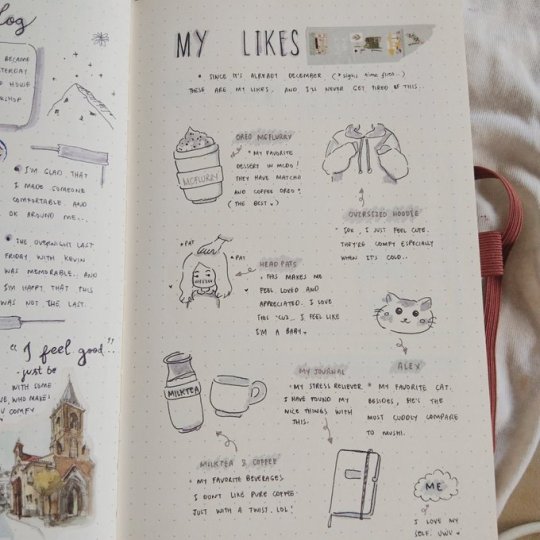 log
BECAME
HOUSE
I'M GLAD, THAT
I MADE SOMEONE
COMFORTABLE. AND
OK AROUND ME...
THE OVERNIGHT LAST
FRIDAY WITH KEVIN
WAS MEMORABLE.. AND
I'M HAPPY THAT THIS
WAS NOT THE LAST.
"I feel good."
just be
WITH SOME
WHO MAKE
COMFY
MY LIKES
* SINCE IT'S ALREADY DECEMBER (*sighs time flies..)
THESE ARE MY LIKES. AND I'LL NEVER GET TIRED OF THIS..
OREO MCFLURRY
* MY FAVORITE
DESSERT IN MCDO!
THEY HAVE MATCHA
AND COFFEE OREO!
(THE BEST)
MCFLURRY
OVERSIZED HOODIE
* IDK, I JUST FEEL CUTE.
THEY'RE COMFY ESPECIALLY
WHEN IT'S COLD..
* PAT
* PAT
HEAD PATS
* THIS MAKES ME
FEEL LOVED AND
APPRECIATED. I LOVE
THIS 'CUZ... I FEEL LIKE
I'M A BABY
MILKTEA
MY JOURNAL
* MY STRESS RELIEVER.
I HAVE FOUND MY
NICE THINGS WITH
THIS.
ALEX
* MY FAVORITE CAT.
BESIDES, HE'S THE
MOST CUDDLY COMPARE
TO MUSHI.
MILKTEA & COFFEE
* MY FAVORITE BEVERAGES
I DON'T LIKE PURE COFFEE
JUST WITH A TWIST. LOL!
ME
I LOVE MY
SELF. UWU